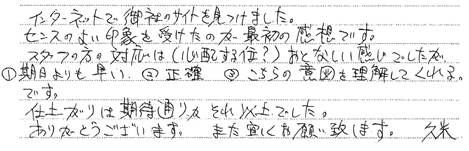 インターネットで御社のサイトを見つけました。
センスのよい印象を受けたのが最初の感想です。
スタッフの方の対応は(心配する位?)おとなしい感じでしたが
①期日よりも早い、②正確 ③こちらの意図を理解してくれる。
です。
仕上がりは期待通りかそれ以上でした。
ありがとうございます。また宜しくお願い致します。 久米